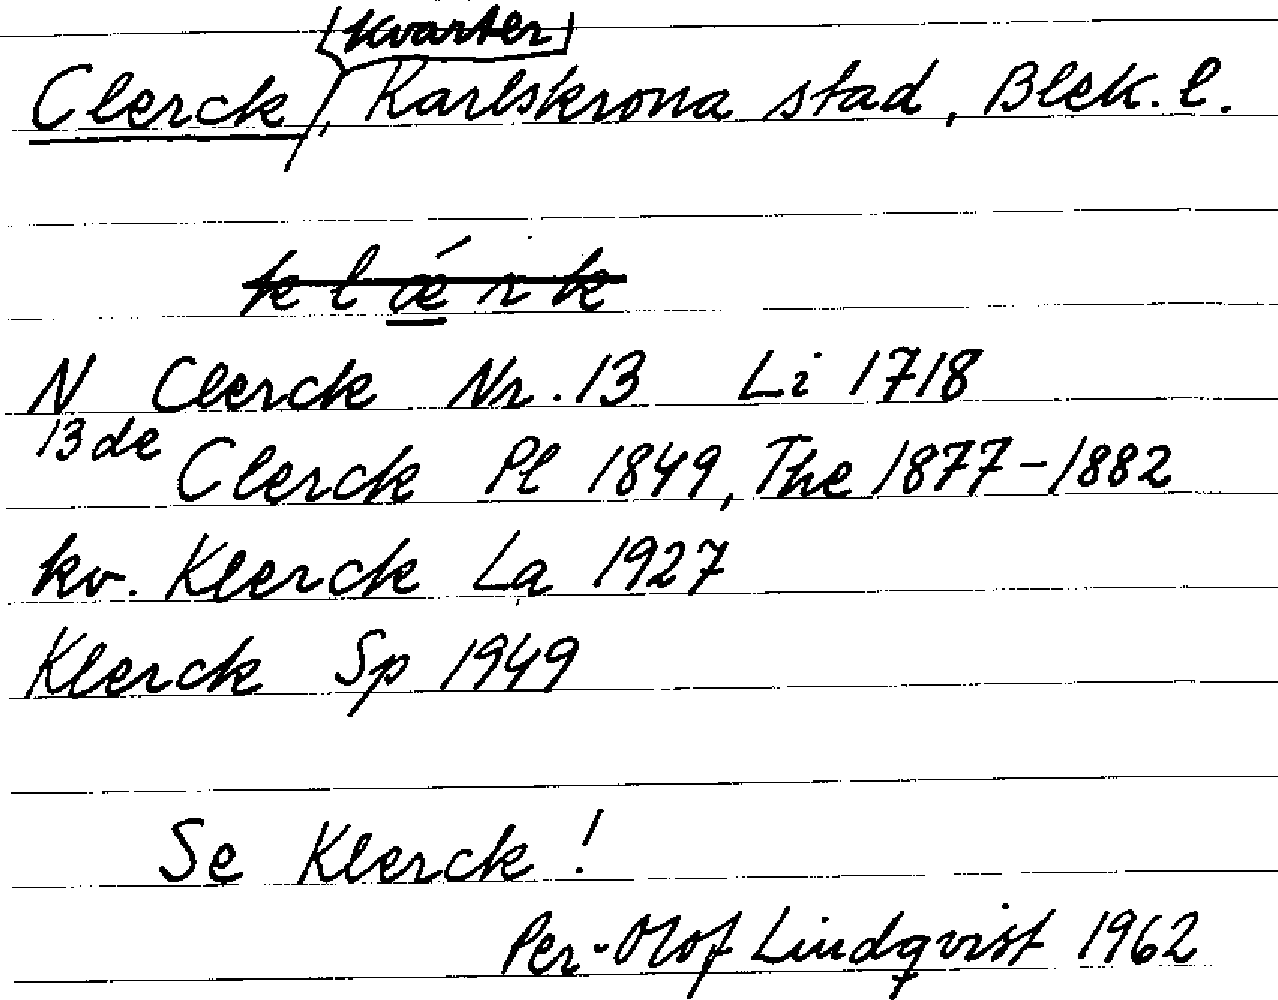 Clerck, [kvarter] Karlskrona stad, Blek. l.
k l ǽ r k
N Clerck Nr. 13 Li 1718
13de Clerck Pl 1849, The 1877-1882
kv. Klerck La 1927
Klerck Sp 1949
Se Klerck!
Per-Olof Lindqvist 1962